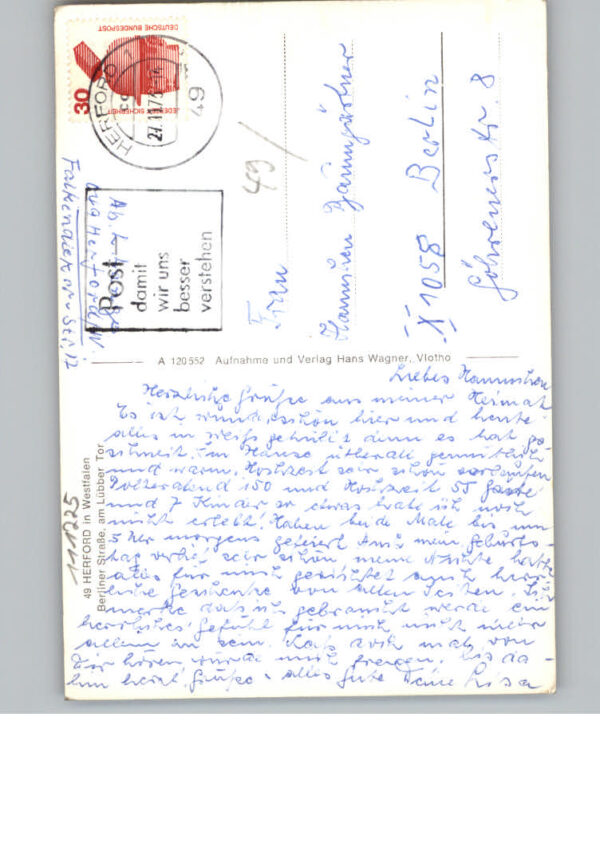 DEUTSCHE BUNDESPOST
JEDERZEIT SICHERHEIT
30
HERFORD 1
27.11.73
49
Post
damit
wir uns
besser
verstehen
Falkendiekerstr. 12
49/
Frau
Hannchen Baumgärtner
X 1058 Berlin
Göhrenerstr. 8
A 120552 Aufnahme und Verlag Hans Wagner, Vlotho
111225
49 HERFORD in Westfalen
Berliner Straße, am Lübber Tor
Liebes Hannchen
Herzliche Grüße aus meiner Heimat
Es ist wunderschön hier und heute
alles in weiß gehüllt denn es hat ge-
schneit. Im Hause überall gemütlich
und warm. Hochzeit sehr schön verlaufen
Polterabend 150 und Hochzeit 55 Gäste
und 7 Kinder so etwas habe ich noch
nicht erlebt! Haben beide Male bis um
5 Uhr morgens gefeiert Auch mein Geburts-
tag verlief sehr schön meine Nichte hatte
alles für mich gerichtet auch herr-
liche Geschenke von allen Seiten. Ich
merke daß ich gebraucht werde ein
herrliches Gefühl für mich nicht mehr
allein zu sein. Laß doch mal von
Dir hören, würde mich freuen, bis da-
hin herzl. Grüße + alles gute Deine Lisa